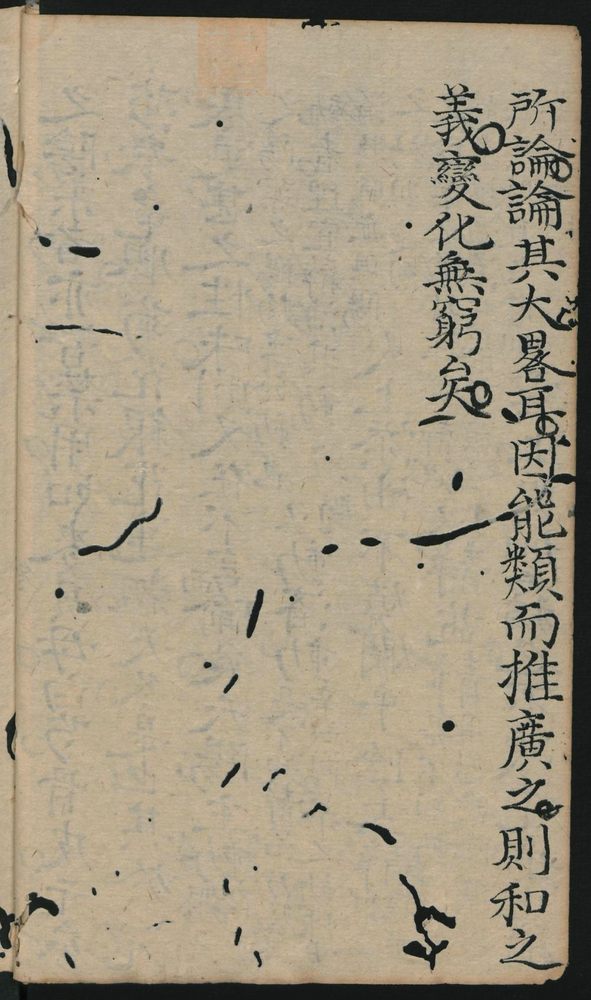 所論論其大畧耳因能類而推廣之則和之
義變化無窮矣